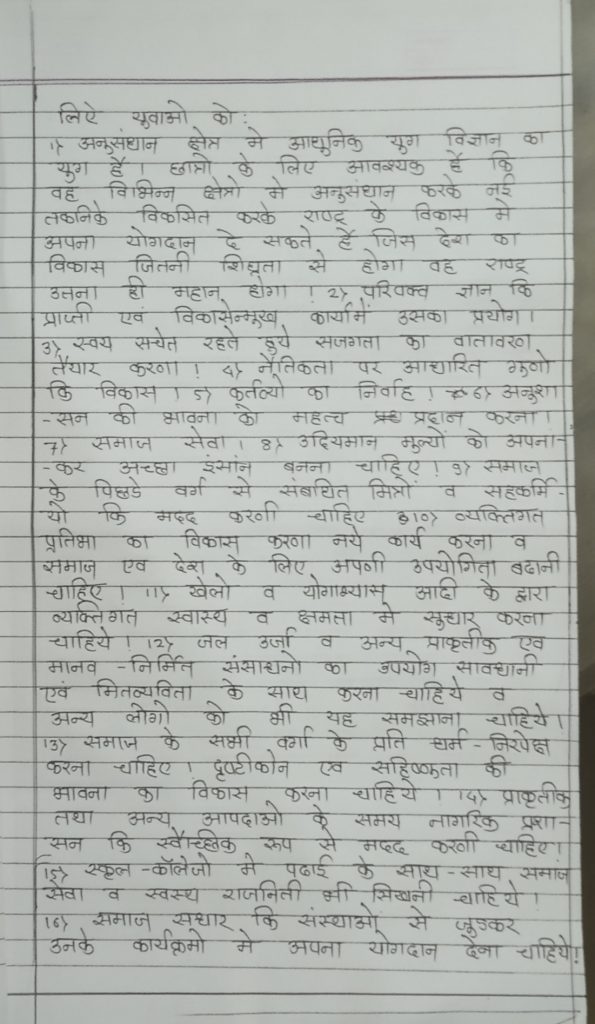 लिऐ युवाओ को :
1) अनुसंधान क्षेत्र मे आधुनिक युग विज्ञान का
युग है । छात्रो के लिए आवश्यक है कि
वह विभिन्न क्षेत्रो मे अनुसंधान करके नई
तकनिके विकसित करके राष्ट्र के विकास मे
अपना योगदान दे सकते है जिस देश का
विकास जितनी शिघ्रता से होगा वह राष्ट्र
उतना ही महान होगा । 2) परिपक्व ज्ञान कि
प्राप्ती एवं विकासेन्मूख कार्यामें उसका प्रयोग ।
3) स्वय सचेत रहते हुये सजगता का वातावरण
तैयार करणा । 4) नैतिकता पर आधारित गुणो
कि विकास । 5) कुर्तव्यो का निर्वाह । 6) अनुशा
-सन की भावना को महत्व प्रदान करना ।
7) समाज सेवा । 8) उदियमान मुल्यों को अपना-
-कर अच्छा इंसांन बनना चाहिए । 9) समाज
के पिछडे वर्ग से संबधित मित्रों व सहकर्मि-
यो कि मदद करणी चाहिए 10) व्यक्तिगत
प्रतिभा का विकास करणा नये कार्य करना व
समाज एव देश के लिए अपणी उपयोगिता बढानी
चाहिए । 11) खेलो व योगाभ्यास आदी के द्वारा
व्यक्तिगत स्वास्थ व क्षमता मे सुधार करना
चाहिये । 12) जल उर्जा व अन्य प्राकृतीक एव
मानव - निर्मित संसाधनो का उपयोग सावधानी
एवं मितव्यविता के साथ करना चाहिये व
अन्य लोगो को भी यह समझाना चाहिये ।
13) समाज के सभी वर्गा के प्रति धर्म - निरपेक्ष
करना चाहिए । दृष्टीकोन एव सहिष्णकता की
भावना का विकास करना चाहिये । 14) प्राकृतीक
तथा अन्य आपदाओ के समय नागरिक प्रशा-
सन कि स्वैच्छिक रूप से मदद करणी चाहिए।
15) स्कूल - कॉलेजो मे पढाई के साथ - साथ समाज
सेवा व स्वस्थ राजनिती भी सिखनी चाहिये ।
16) समाज सधार कि संस्थाओ से जुडकर
उनके कार्यक्रमो मे अपना योगदान देना चाहिये।